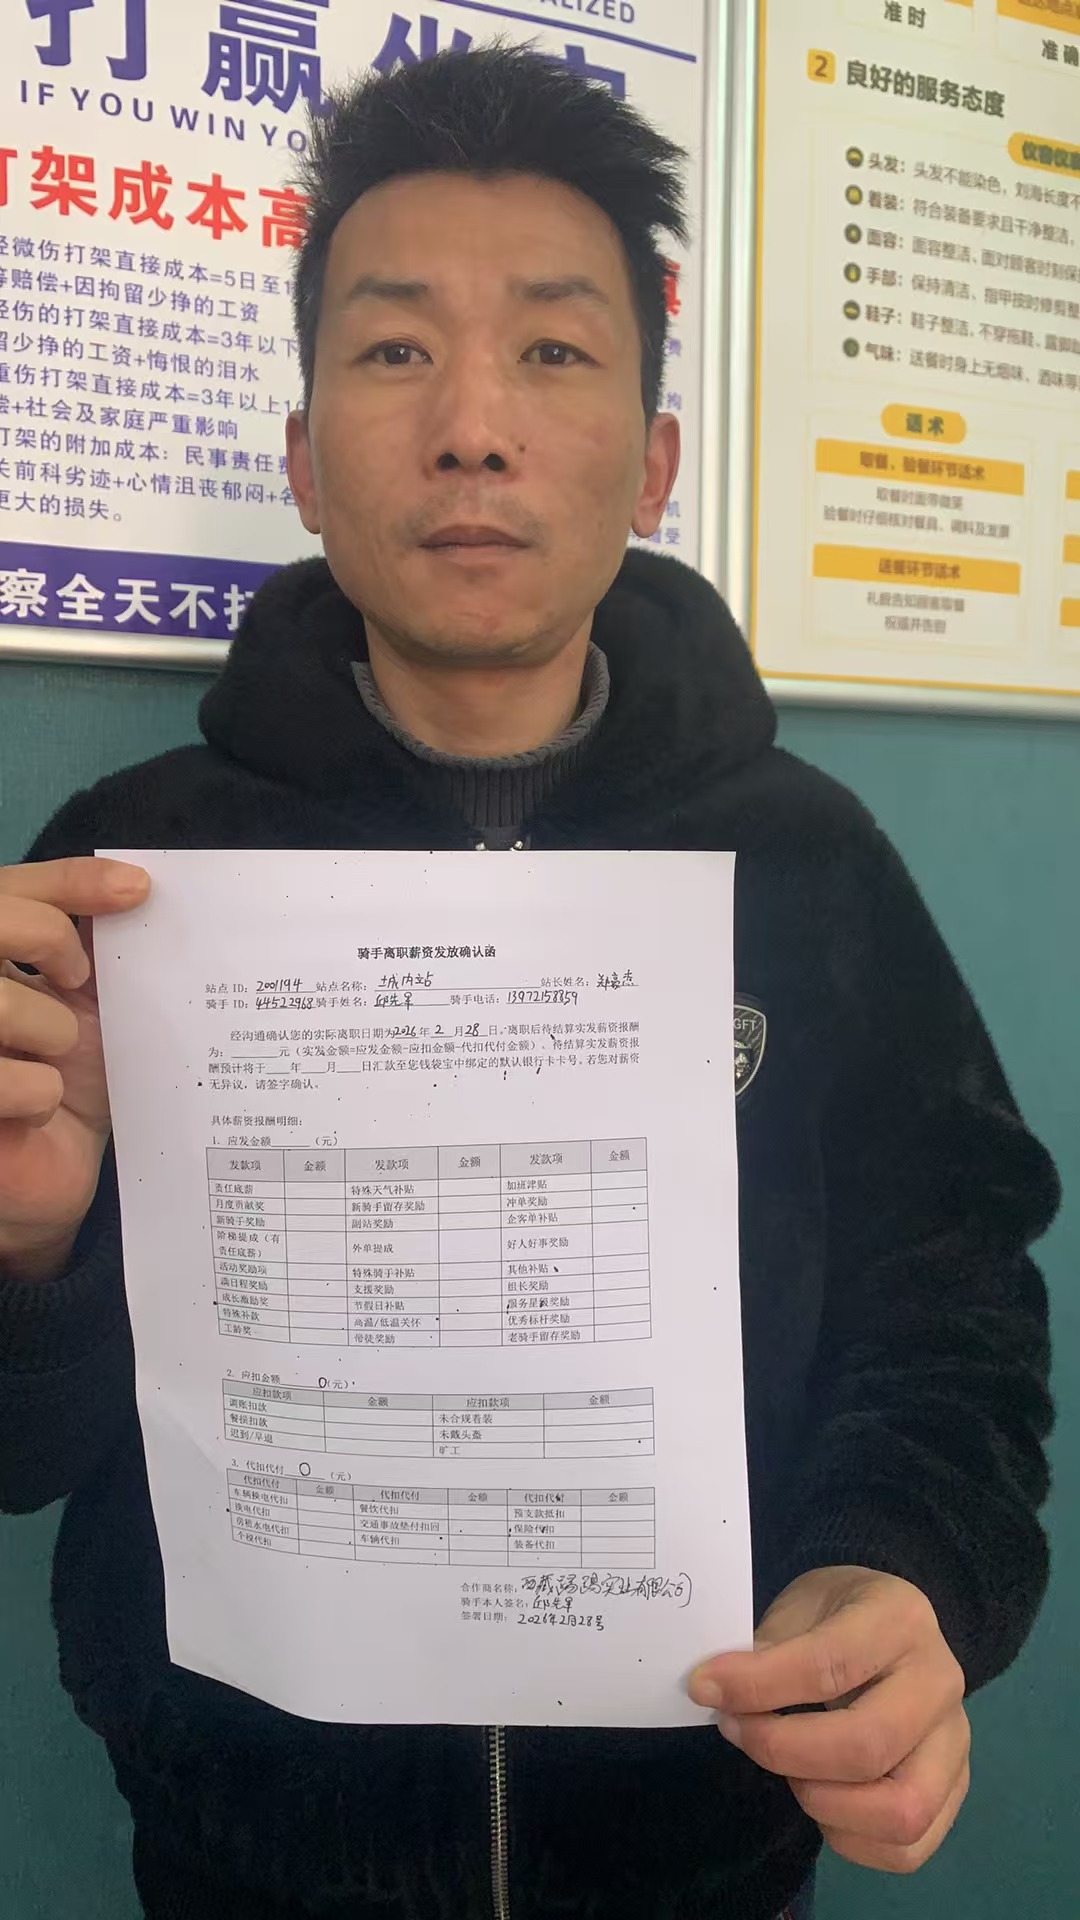 ALIZED
打赢坐牢
IF YOU WIN YO
打架成本高
轻微伤打架直接成本=5日至1
等赔偿+因拘留少挣的工资
轻伤的打架直接成本=3年以下
留少挣的工资+悔恨的泪水
重伤打架直接成本=3年以上10
偿+社会及家庭严重影响
打架的附加成本：民事责任费
关前科劣迹+心情沮丧郁闷+名
更大的损失。
察全天不打
准时
准确
2 良好的服务态度
仪容仪
头发：头发不能染色，刘海长度不
着装：符合装备要求且干净整洁，
面容：面容整洁、面对顾客时刻保
手部：保持清洁、指甲按时修剪整
鞋子：鞋子整洁，不穿拖鞋、露脚
气味：送餐时身上无烟味、酒味等
话术
取餐、验餐环节话术
取餐时面带微笑
验餐时仔细核对餐具、调料及发票
送餐环节话术
礼貌告知顾客取餐
祝福并告别
GFT
骑手离职薪资发放确认函
站点 ID：2001194 站点名称：城内站 站长姓名：郑豪杰
骑手 ID：44522968 骑手姓名：邱先军 骑手电话：13972158859
经沟通确认您的实际离职日期为2026年 2 月 28 日。离职后待结算实发薪资报酬
为：______元（实发金额=应发金额-应扣金额-代扣代付金额）。待结算实发薪资报
酬预计将于____年____月____日汇款至您钱袋宝中绑定的默认银行卡卡号。若您对薪资
无异议，请签字确认。
具体薪资报酬明细：
1. 应发金额______（元）
发款项 金额 发款项 金额 发款项 金额
责任底薪 特殊天气补贴 加班津贴
月度贡献奖 新骑手留存奖励 冲单奖励
新骑手奖励 副站奖励 企客单补贴
阶梯提成（有责任底薪） 外单提成 好人好事奖励
活动奖励项 特殊骑手补贴 其他补贴
满日程奖励 支援奖励 组长奖励
成长激励奖 节假日补贴 服务星级奖励
特殊补款 高温/低温关怀 优秀标杆奖励
工龄奖 带徒奖励 老骑手留存奖励
2. 应扣金额 0（元）
应扣款项 金额 应扣款项 金额
调账扣款 未合规着装
餐损扣款 未戴头盔
迟到/早退 旷工
3. 代扣代付 0（元）
代扣代付 金额 代扣代付 金额 代扣代付 金额
车辆换电代扣 餐饮代扣 预支款抵扣
换电代扣 交通事故垫付扣回 保险代扣
房租水电代扣 车辆代扣 装备代扣
个税代扣
合作商名称：西藏踢踢实业有限公司
骑手本人签名：邱先军
签署日期：2026年2月28号